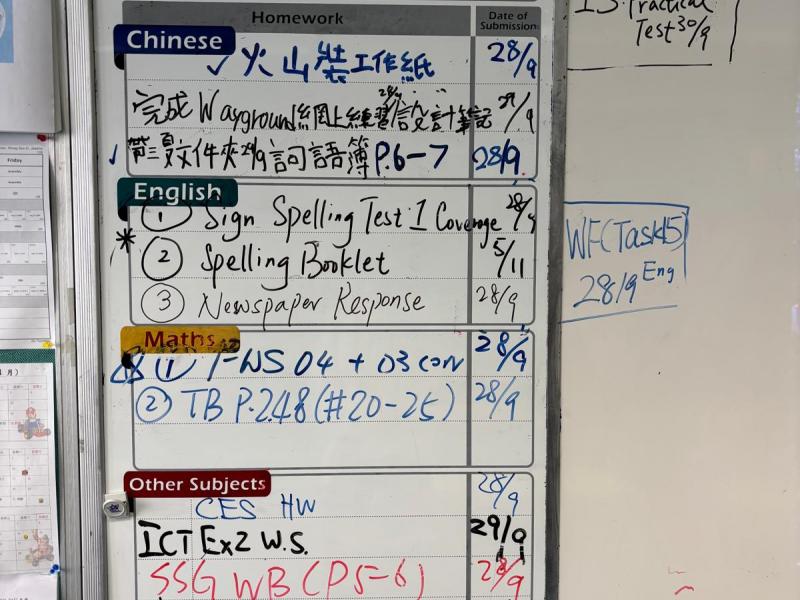 Homework Date of Submission
Chinese
火山 工作紙 28/9
28/9
完成Wayground網上練習/設計筆記 29/9
帶三 文件夾29/9 詞語簿P.6-7 28/9
English
① Sign Spelling Test 1 Coverage 28/9
* ② Spelling Booklet 5/11
③ Newspaper Response 28/9
Maths
① WS 04 + 03 con 28/9
② TB P.2.48 (#20-25) 28/9
Other Subjects
CES HW 28/9
ICT Ex2 W.S. 29/9
SSG WB (P5-6) 28/9
Practical
Test 30/9
WF(Task15)
28/9 Eng
Friday